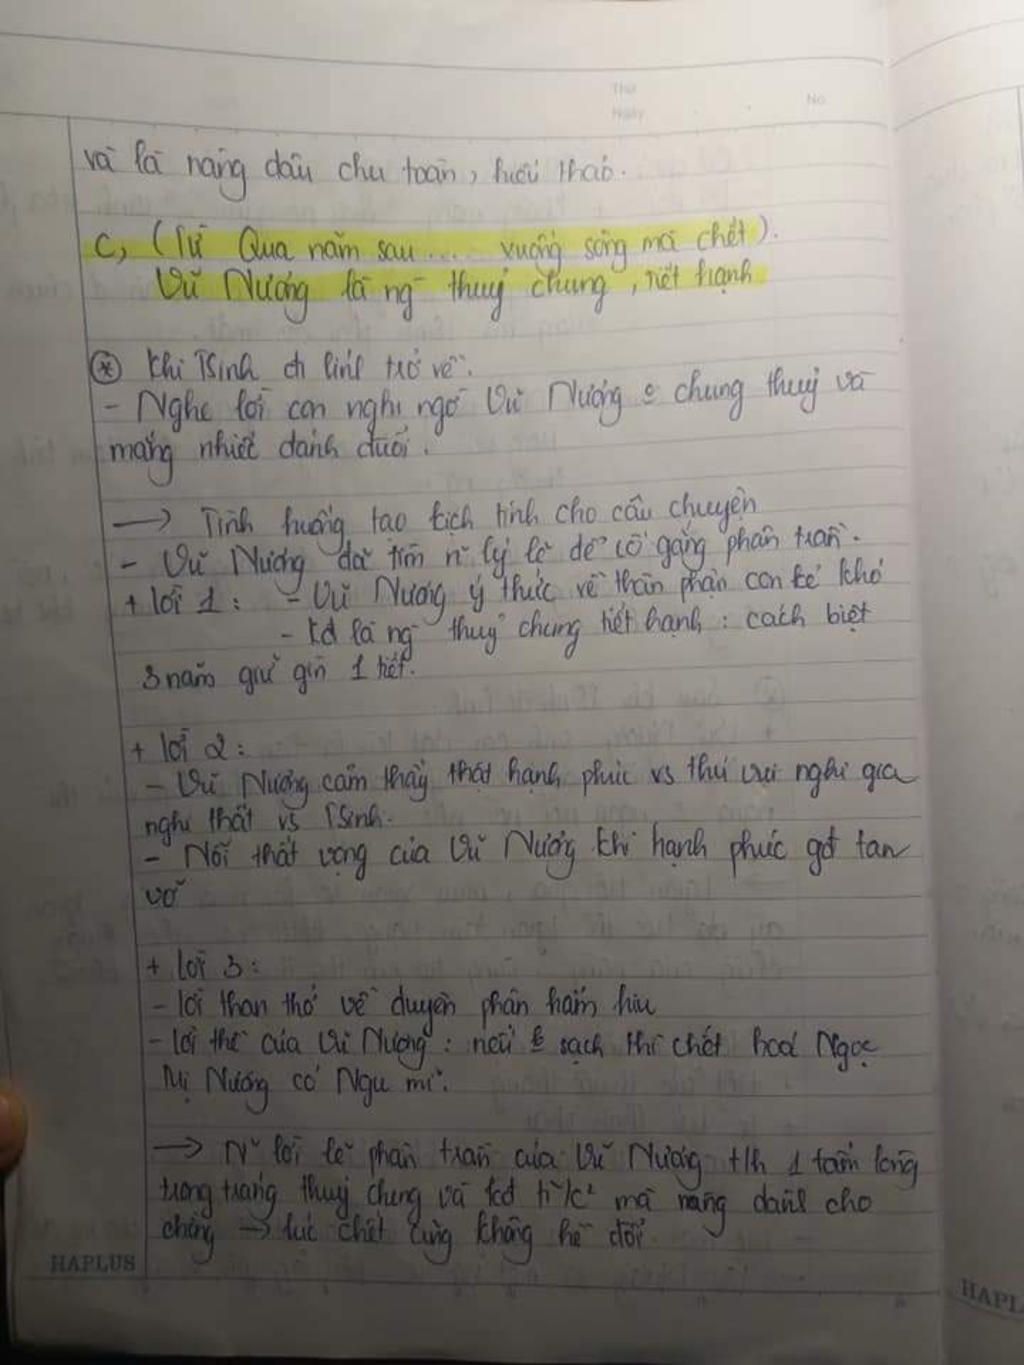 Thứ
Ngày
No.
và là nàng dâu chu toàn, hiếu thảo.
c, (Từ Qua năm sau .... xuống sông mà chết).
Vũ Nương là ng thuỷ chung, tiết hạnh
* Khi TSinh đi lính trở về.
- Nghe lời con nghi ngờ Vũ Nương chung thuỷ và
mắng nhiếc đánh đuổi.
→ Tình huống tạo kịch tính cho câu chuyện
- Vũ Nương đã tìm n~ lý lẽ để cố gắng phân trần.
+ lời 1: - Vũ Nương ý thức về thân phận con kẻ khó
- kđ là ng thuỷ chung tiết hạnh: cách biệt
3 năm giữ gìn 1 tiết.
+ lời 2:
- Vũ Nương cảm thấy thật hạnh phúc vs thú vui nghi gia
nghi thất vs TSinh.
- Nỗi thất vọng của Vũ Nương khi hạnh phúc gđ tan
vỡ
+ lời 3:
- lời than thở về duyên phận hẩm hiu
- lời thề của Vũ Nương: nếu sạch thì chết hoá Ngọc
Mị Nương cỏ Ngu mĩ.
→ N~ lời lẽ phân trần của Vũ Nương t/h 1 tấm lòng
trong trắng thuỷ chung và kđ t/c² mà nàng dành cho
chồng → lúc chết cũng không hề đổi
HAPLUS
HAPL